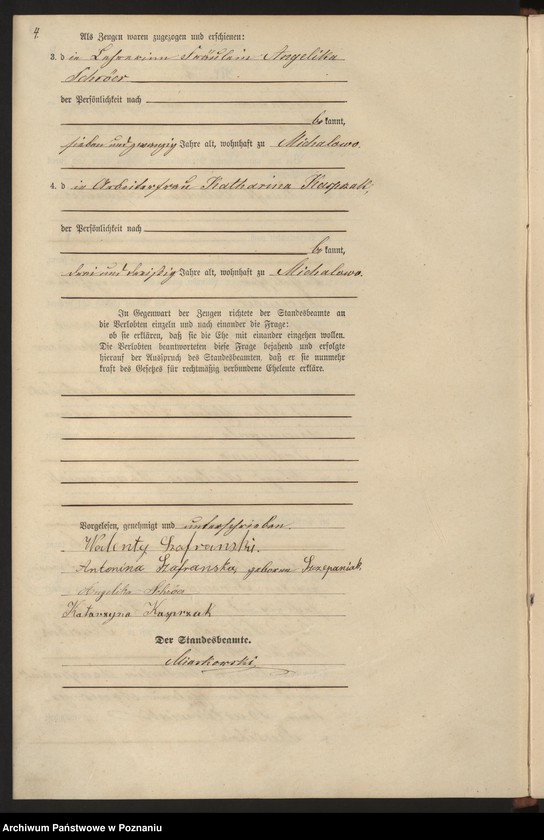 4.
Als Zeugen waren zugezogen und erschienen:
3. die Lehrerinn Fräulein Angelika
Schröer
der Persönlichkeit nach
bekannt,
sieben und zwanzig Jahre alt, wohnhaft zu Michalowo.
4. die Arbeiterfrau Katharina Kasprzak,
der Persönlichkeit nach
bekannt,
drei und dreißig Jahre alt, wohnhaft zu Michalowo.
In Gegenwart der Zeugen richtete der Standesbeamte an
die Verlobten einzeln und nach einander die Frage:
ob sie erklären, daß sie die Ehe mit einander eingehen wollen.
Die Verlobten beantworteten diese Frage bejahend und erfolgte
hierauf der Ausspruch des Standesbeamten, daß er sie nunmehr
kraft des Gesetzes für rechtmäßig verbundene Eheleute erkläre.
Vorgelesen, genehmigt und unterschrieben.
Walenty Szafranski.
Antonina Szafranska, geborne Szczepaniak
Angelika Schröer
Katarzyna Kasprzak
Der Standesbeamte.
Miaskowski
Archiwum Państwowe w Poznaniu